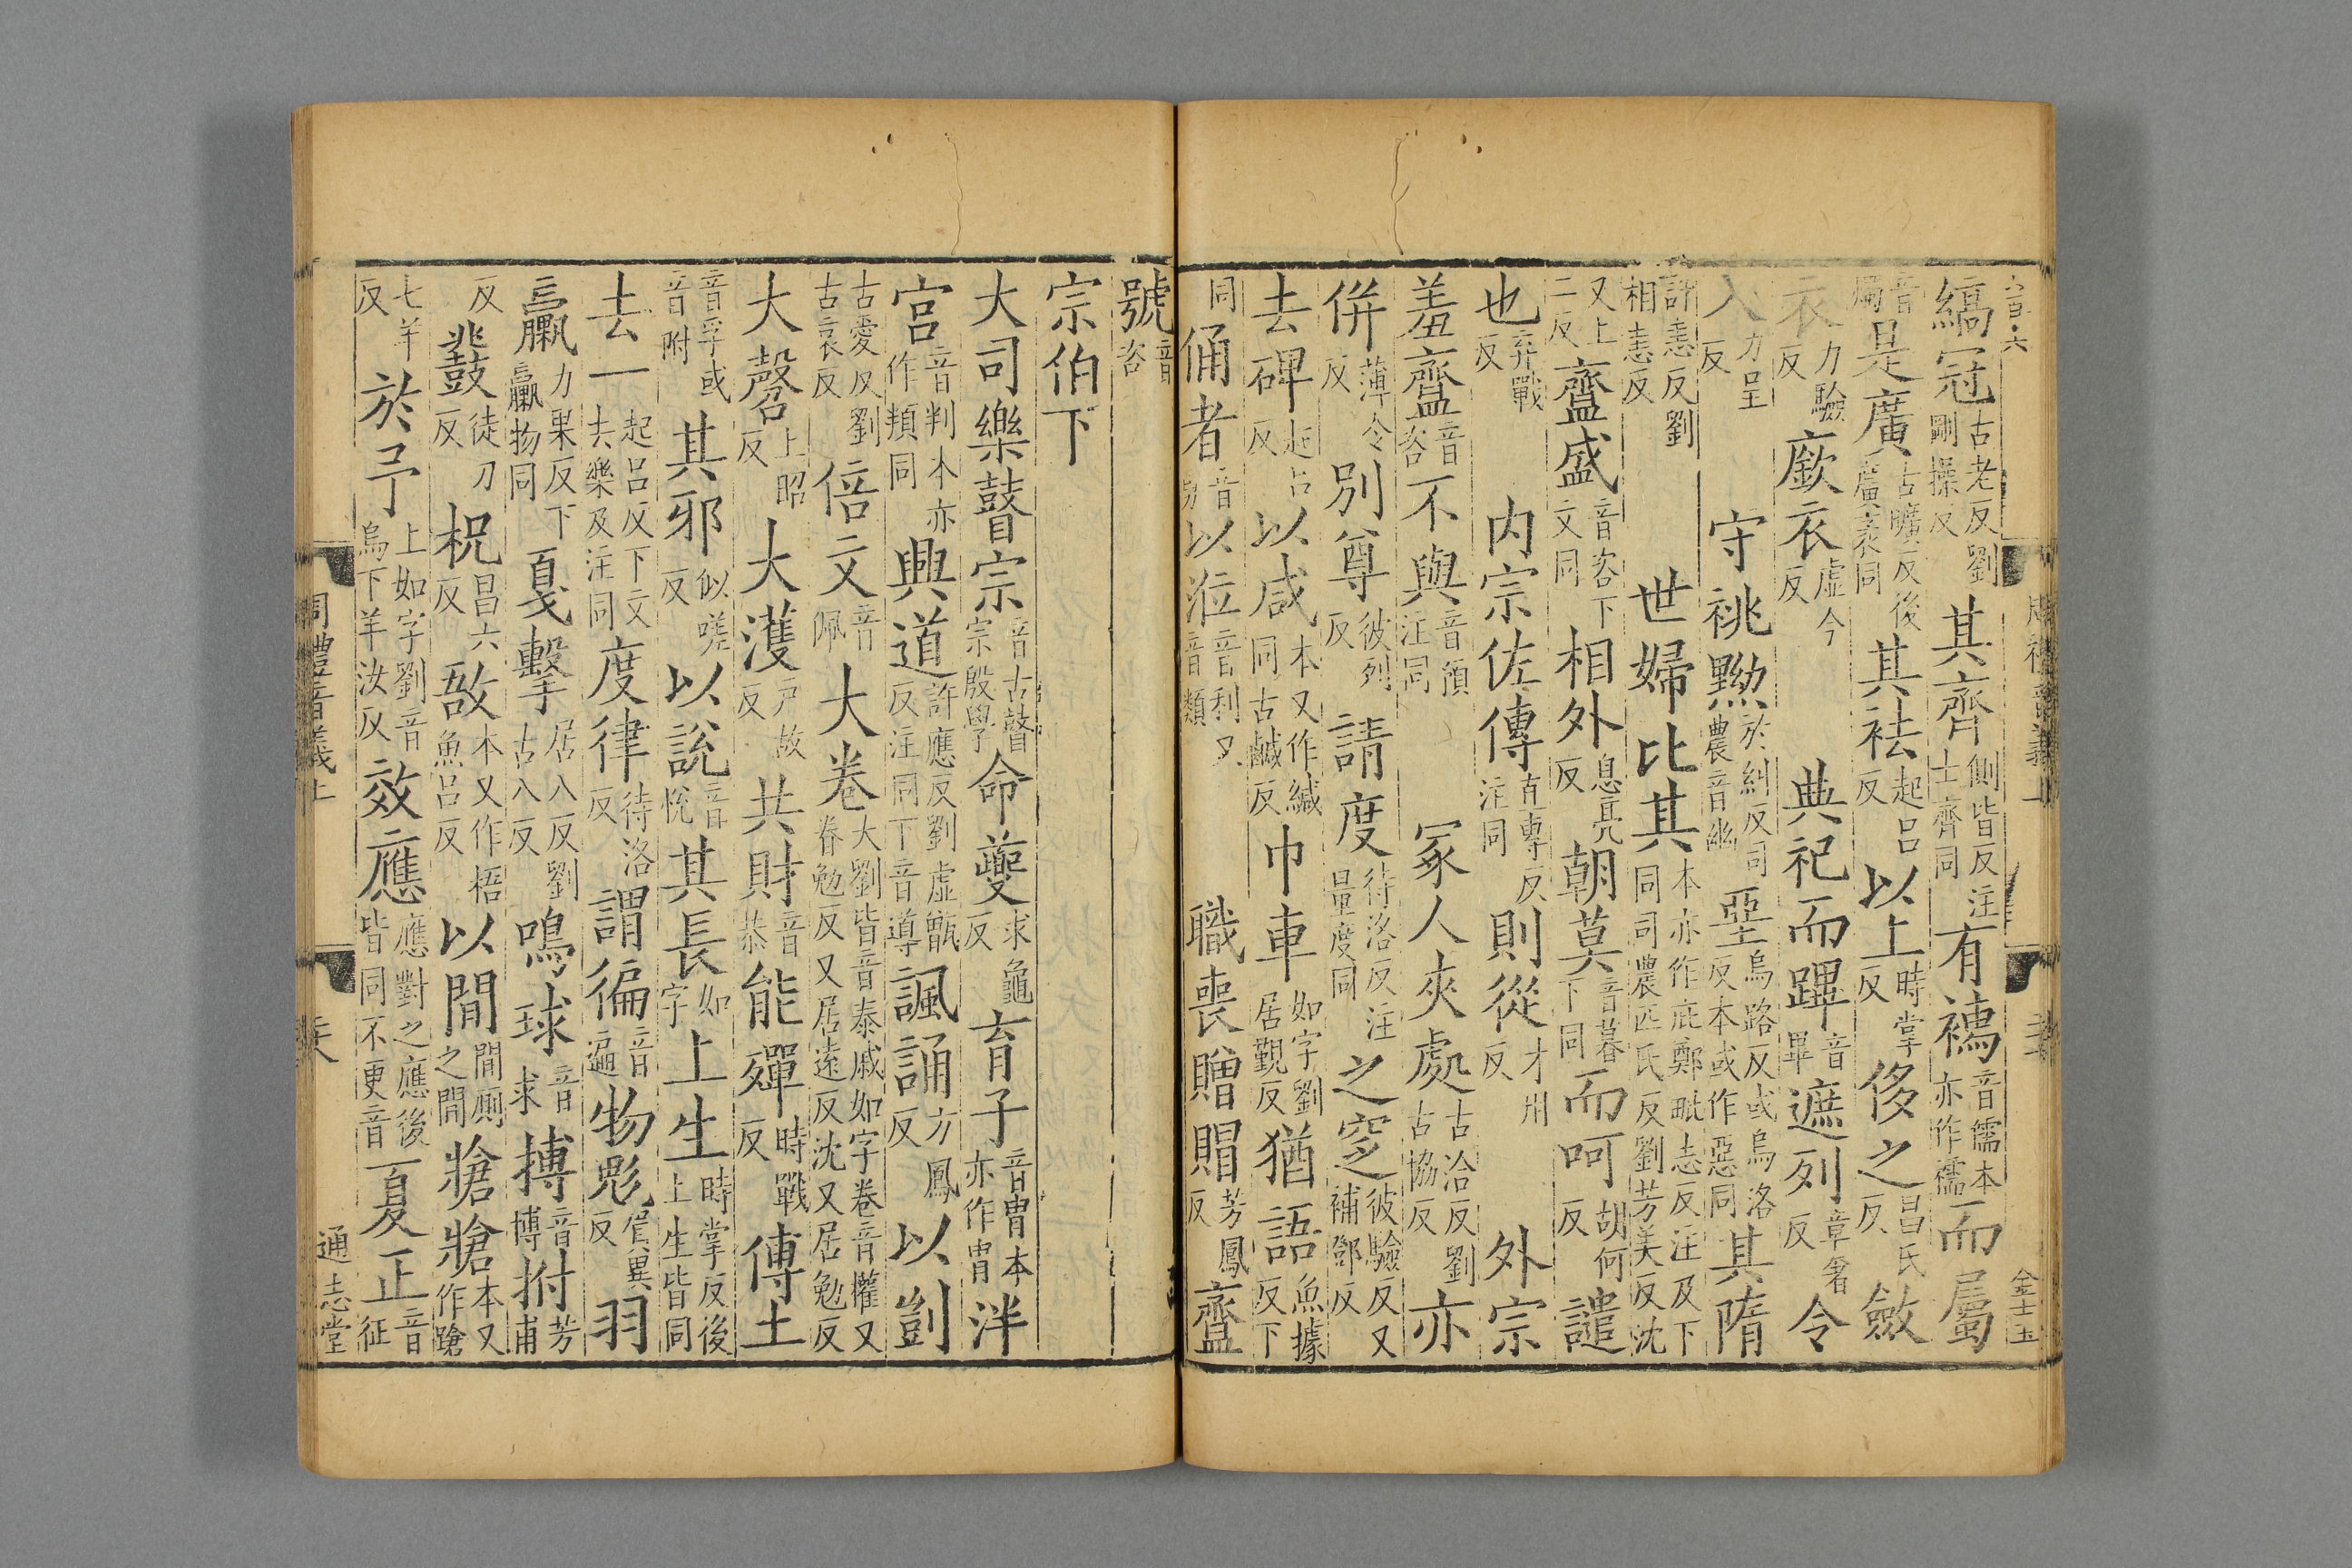 縞冠古老反劉剛操反其齊側皆反注士齊同有襦音儒本亦作襦而屬
音屬是廣古曠反後廣袤同其袪起呂反以上時掌反侈之昌氏反斂
衣力驗反廞衣虛今反典祀而蹕音畢遮列章奢反令
入力呈反守祧黝於糾反司農音幽堊烏路反或烏洛反本或作惡同其隋
許恚反劉相恚反世婦比其本亦作庇鄭毗志反注及下同司農匹氏反劉芳美反沈
又上二反齍盛音咨下文同相外息亮反朝莫音暮下同而呵胡何反譴
也弃戰反内宗佐傳直專反注同則從才用反外宗
羞齍音咨不與音預注同冢人夾處古洽反劉古協反亦
併薄令反別尊彼列反請度待洛反注量度同之窆彼驗反又補鄧反
去碑起呂反以咸本又作緘同古鹹反巾車如字劉居覲反猶語魚據反下
同俑者音勇以涖音利又音類職喪贈賵芳鳳反齍
號音咨
宗伯下
大司樂瞽宗音古瞽宗殷學命夔求龜反育子音胄本亦作胄泮
宮音判本亦作頖同興道許應反劉虛甑反注同下音導諷誦方鳳反以剴
古愛反劉古哀反倍文音佩大卷大劉皆音泰戚如字卷音權又眷勉反又居遠反沈又居勉反
大磬上昭反大濩戶故反共財音恭能殫時戰反傅土
音孚或音附其邪似嗟反以說音悅其長如字上生時掌反後上生皆同
去一起呂反下文去樂及注同度律待洛反謂徧音遍物鬽眉異反羽
臝力果反下臝物同戛擊居八反劉古八反鳴球音求搏音博拊芳甫
反鼗徒刀反柷昌六反敔本又作梧魚呂反以閒閒廁之閒牄牄本又作蹌
七羊反於予上如字劉音烏下羊汝反效應應對之應後皆同不更音夏正音征
周禮音義上
通志堂